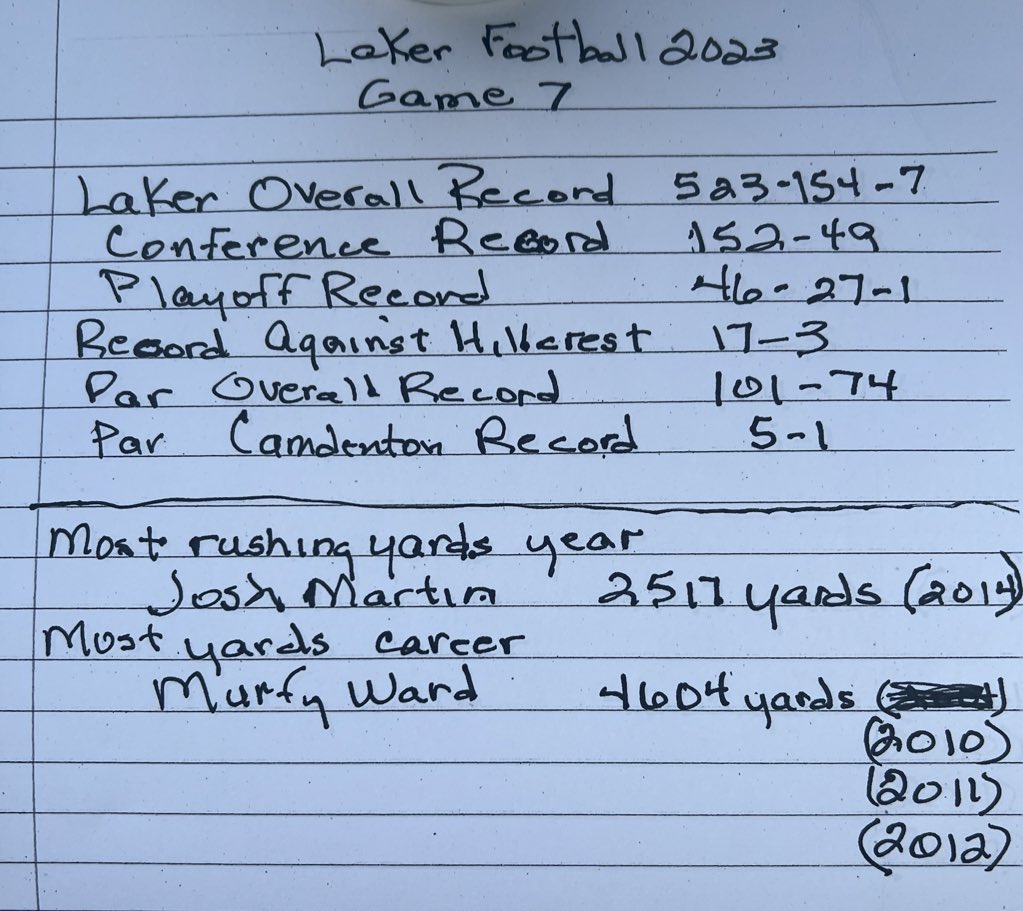 Laker Football 2023
Game 7
Laker Overall Record 523-154-7
Conference Record 152-49
Playoff Record 46-27-1
Record Against Hillcrest 17-3
Par Overall Record 101-74
Par Camdenton Record 5-1
Most rushing yards year
Josh Martin 2517 yards (2014)
Most yards career
Murfy Ward 4604 yards
(2010)
(2011)
(2012)